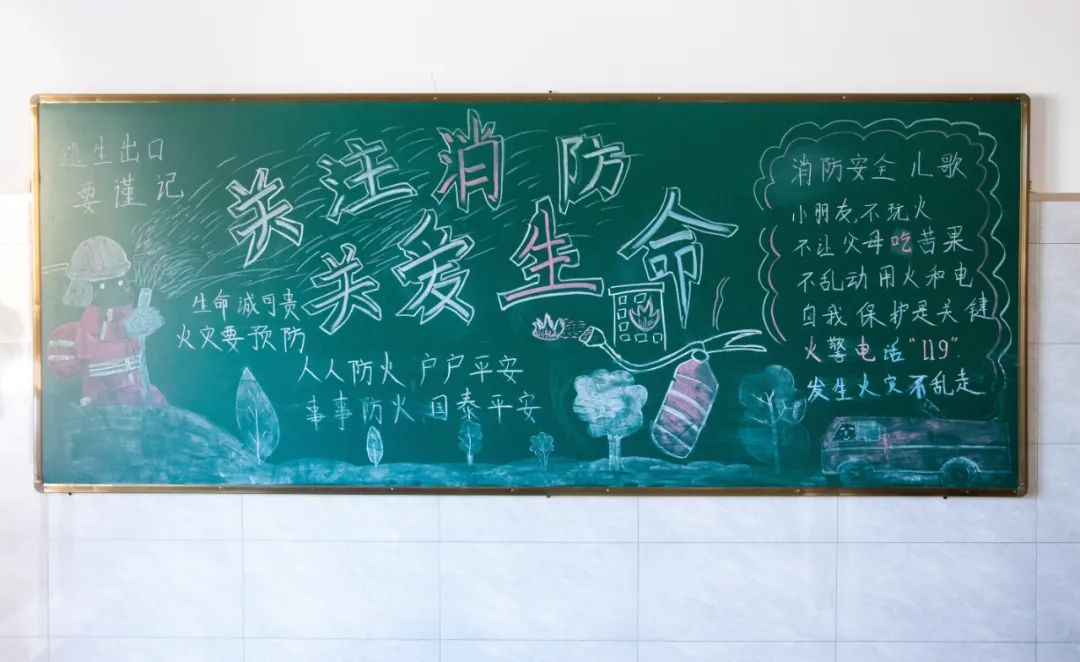 逃生出口
要谨记
关注消防
关爱生命
生命诚可贵
火灾要预防
人人防火 户户平安
事事防火 国泰平安
消防安全 儿歌
小朋友不玩火
不让父母吃苦果
不乱动用火和电
自我保护是关键
火警电话"119".
发生火灾不乱走